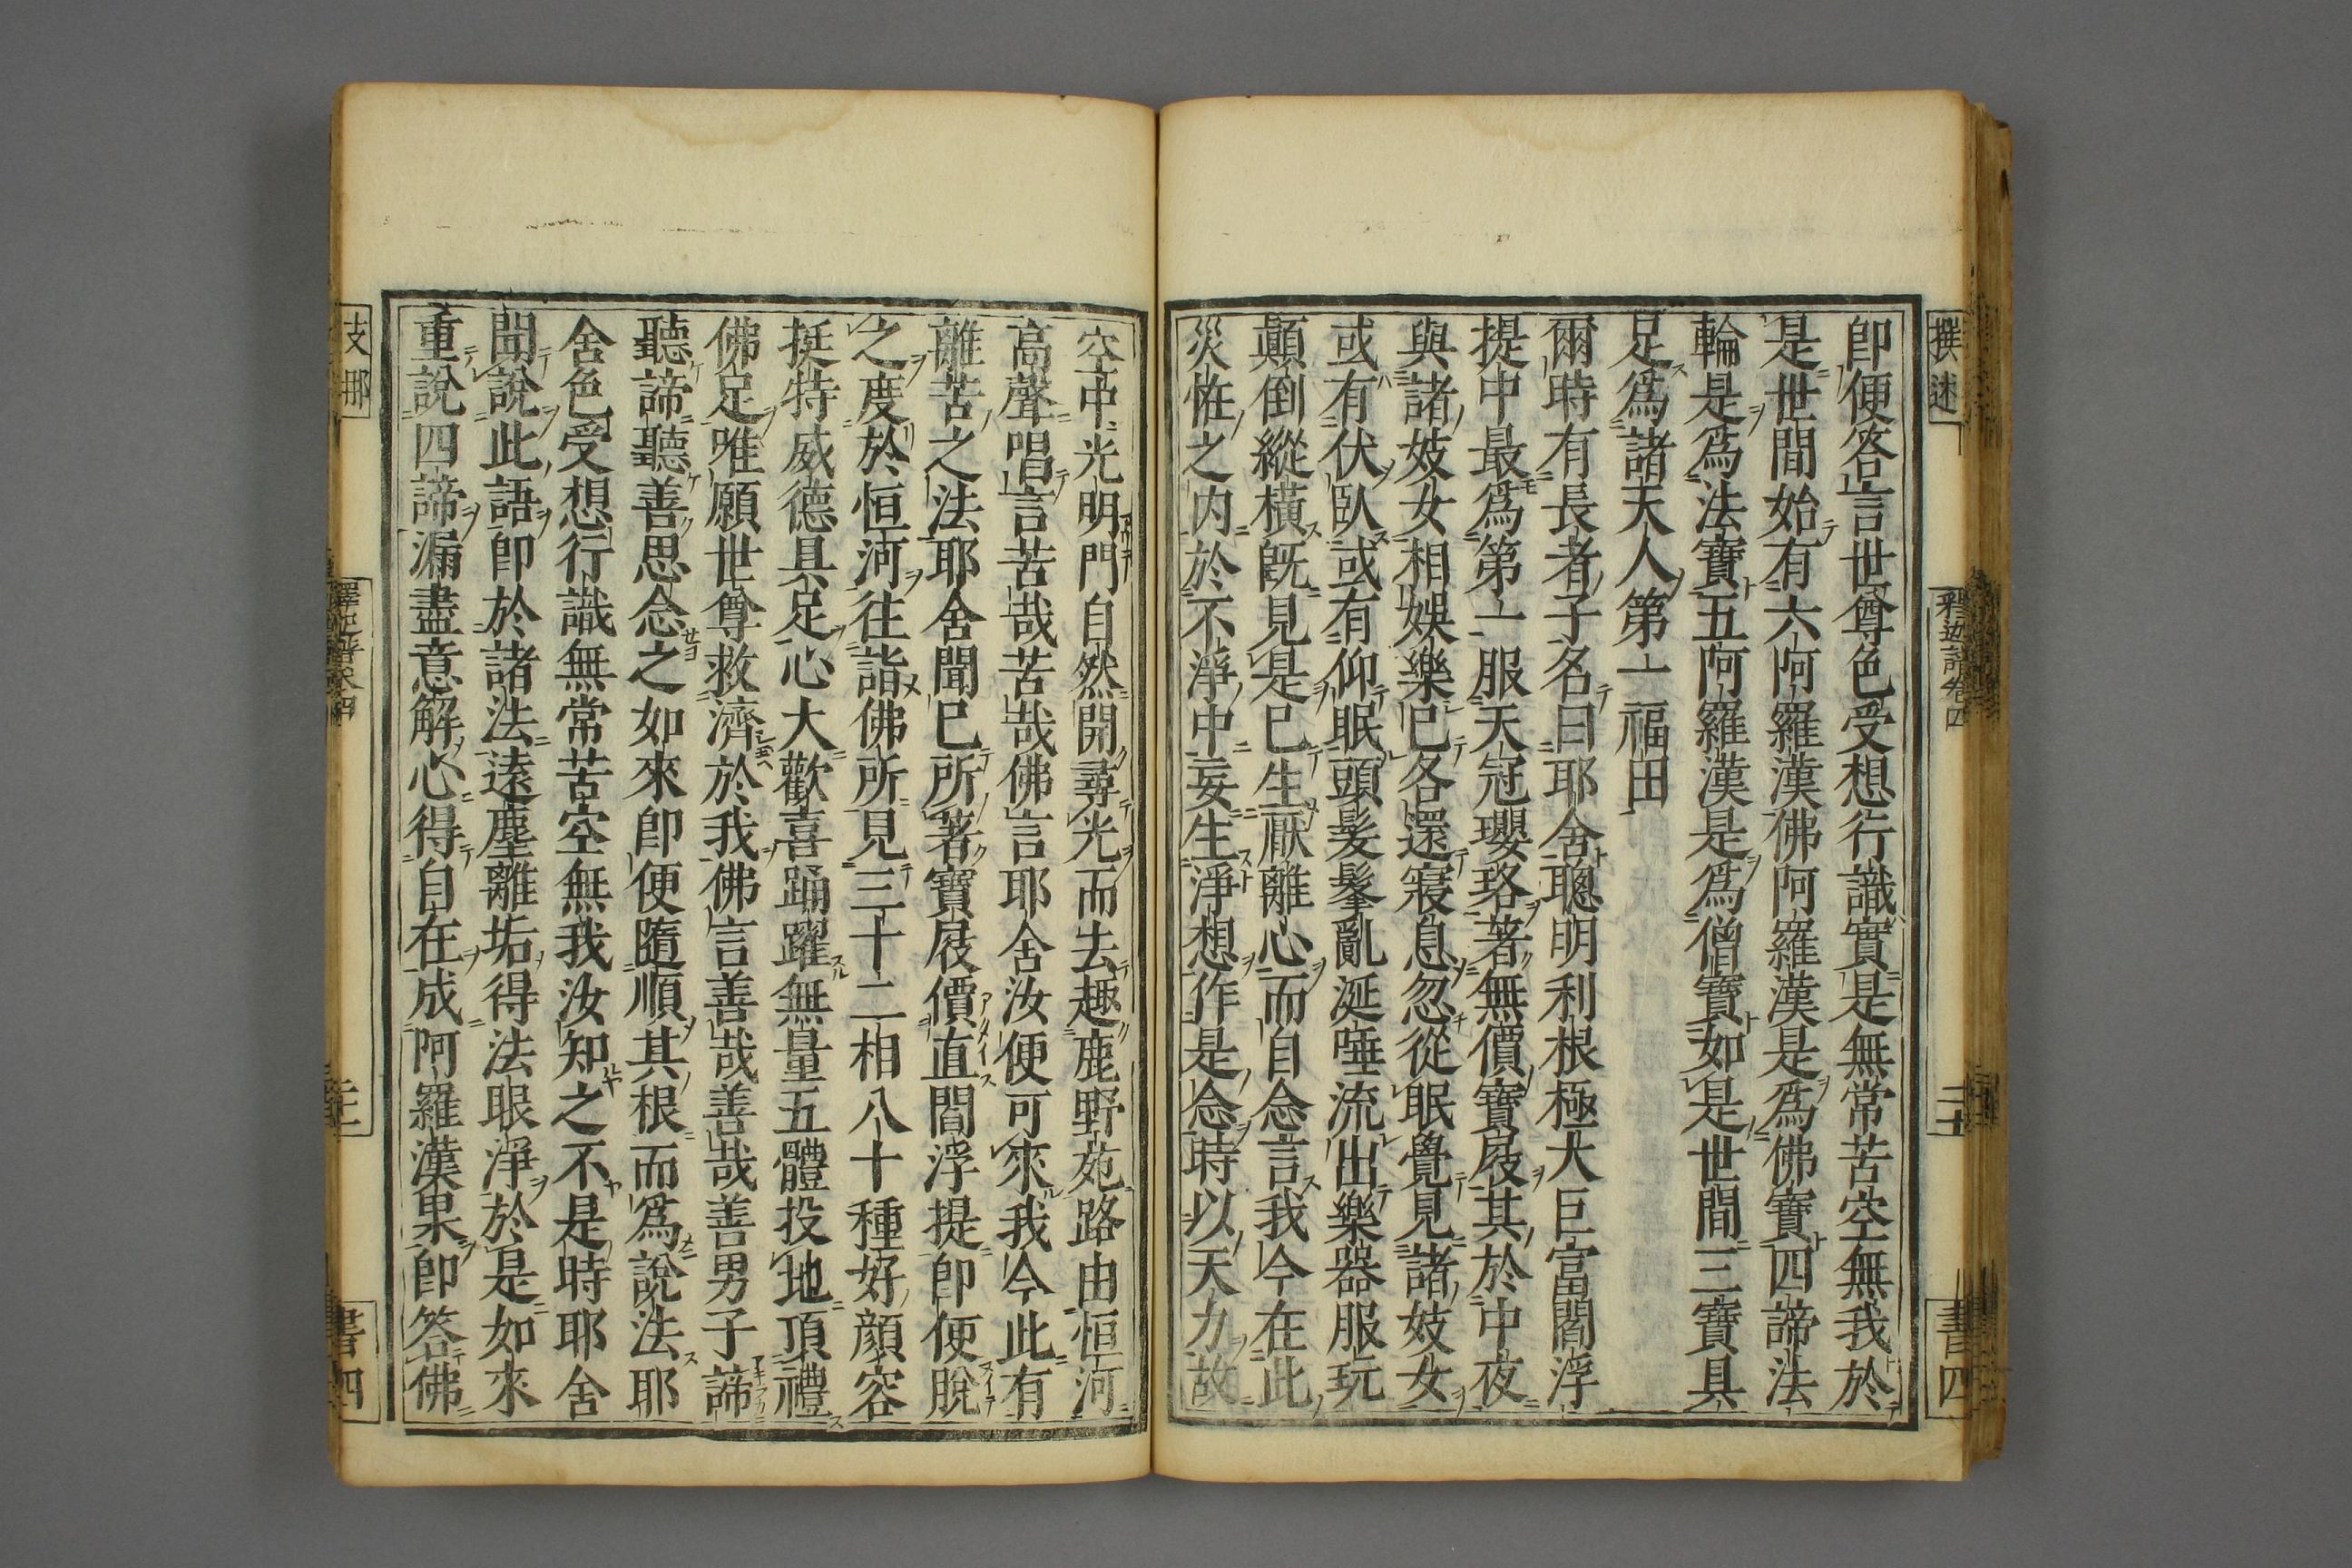 撰述
釋迦譜卷四
二十
書四
卽便答言世尊色受想行識實是無常苦空無我於
是世間始有六阿羅漢佛阿羅漢是爲佛寶四諦法
輪是爲法寶五阿羅漢是爲僧寶如是世間三寶具
足爲諸天人第一福田
爾時有長者子名曰耶舍聰明利根極大巨富閻浮
提中最爲第一服天冠瓔珞著無價寶屐其於中夜
與諸妓女相娛樂已各還寢息忽從眠覺見諸妓女
或有伏臥或有仰眠頭髮髼亂涎唾流出樂器服玩
顚倒縱橫旣見是已生厭離心而自念言我今在此
災恠之內於不淨中妄生淨想作是念時以天力故
空中光明門自然開尋光而去趣鹿野苑路由恒河
高聲唱言苦哉苦哉佛言耶舍汝便可來我今此有
離苦之法耶舍聞已所著寶屐價直閻浮提卽便脫
之度於恒河往詣佛所見三十二相八十種好顏容
挺特威德具足心大歡喜踊躍無量五體投地頂禮
佛足唯願世尊救濟於我佛言善哉善哉善男子諦
聽諦聽善思念之如來卽便隨順其根而爲說法耶
舍色受想行識無常苦空無我汝知之不是時耶舍
聞說此語卽於諸法遠塵離垢得法眼淨於是如來
重說四諦漏盡意解心得自在成阿羅漢果卽答佛
支那
書四